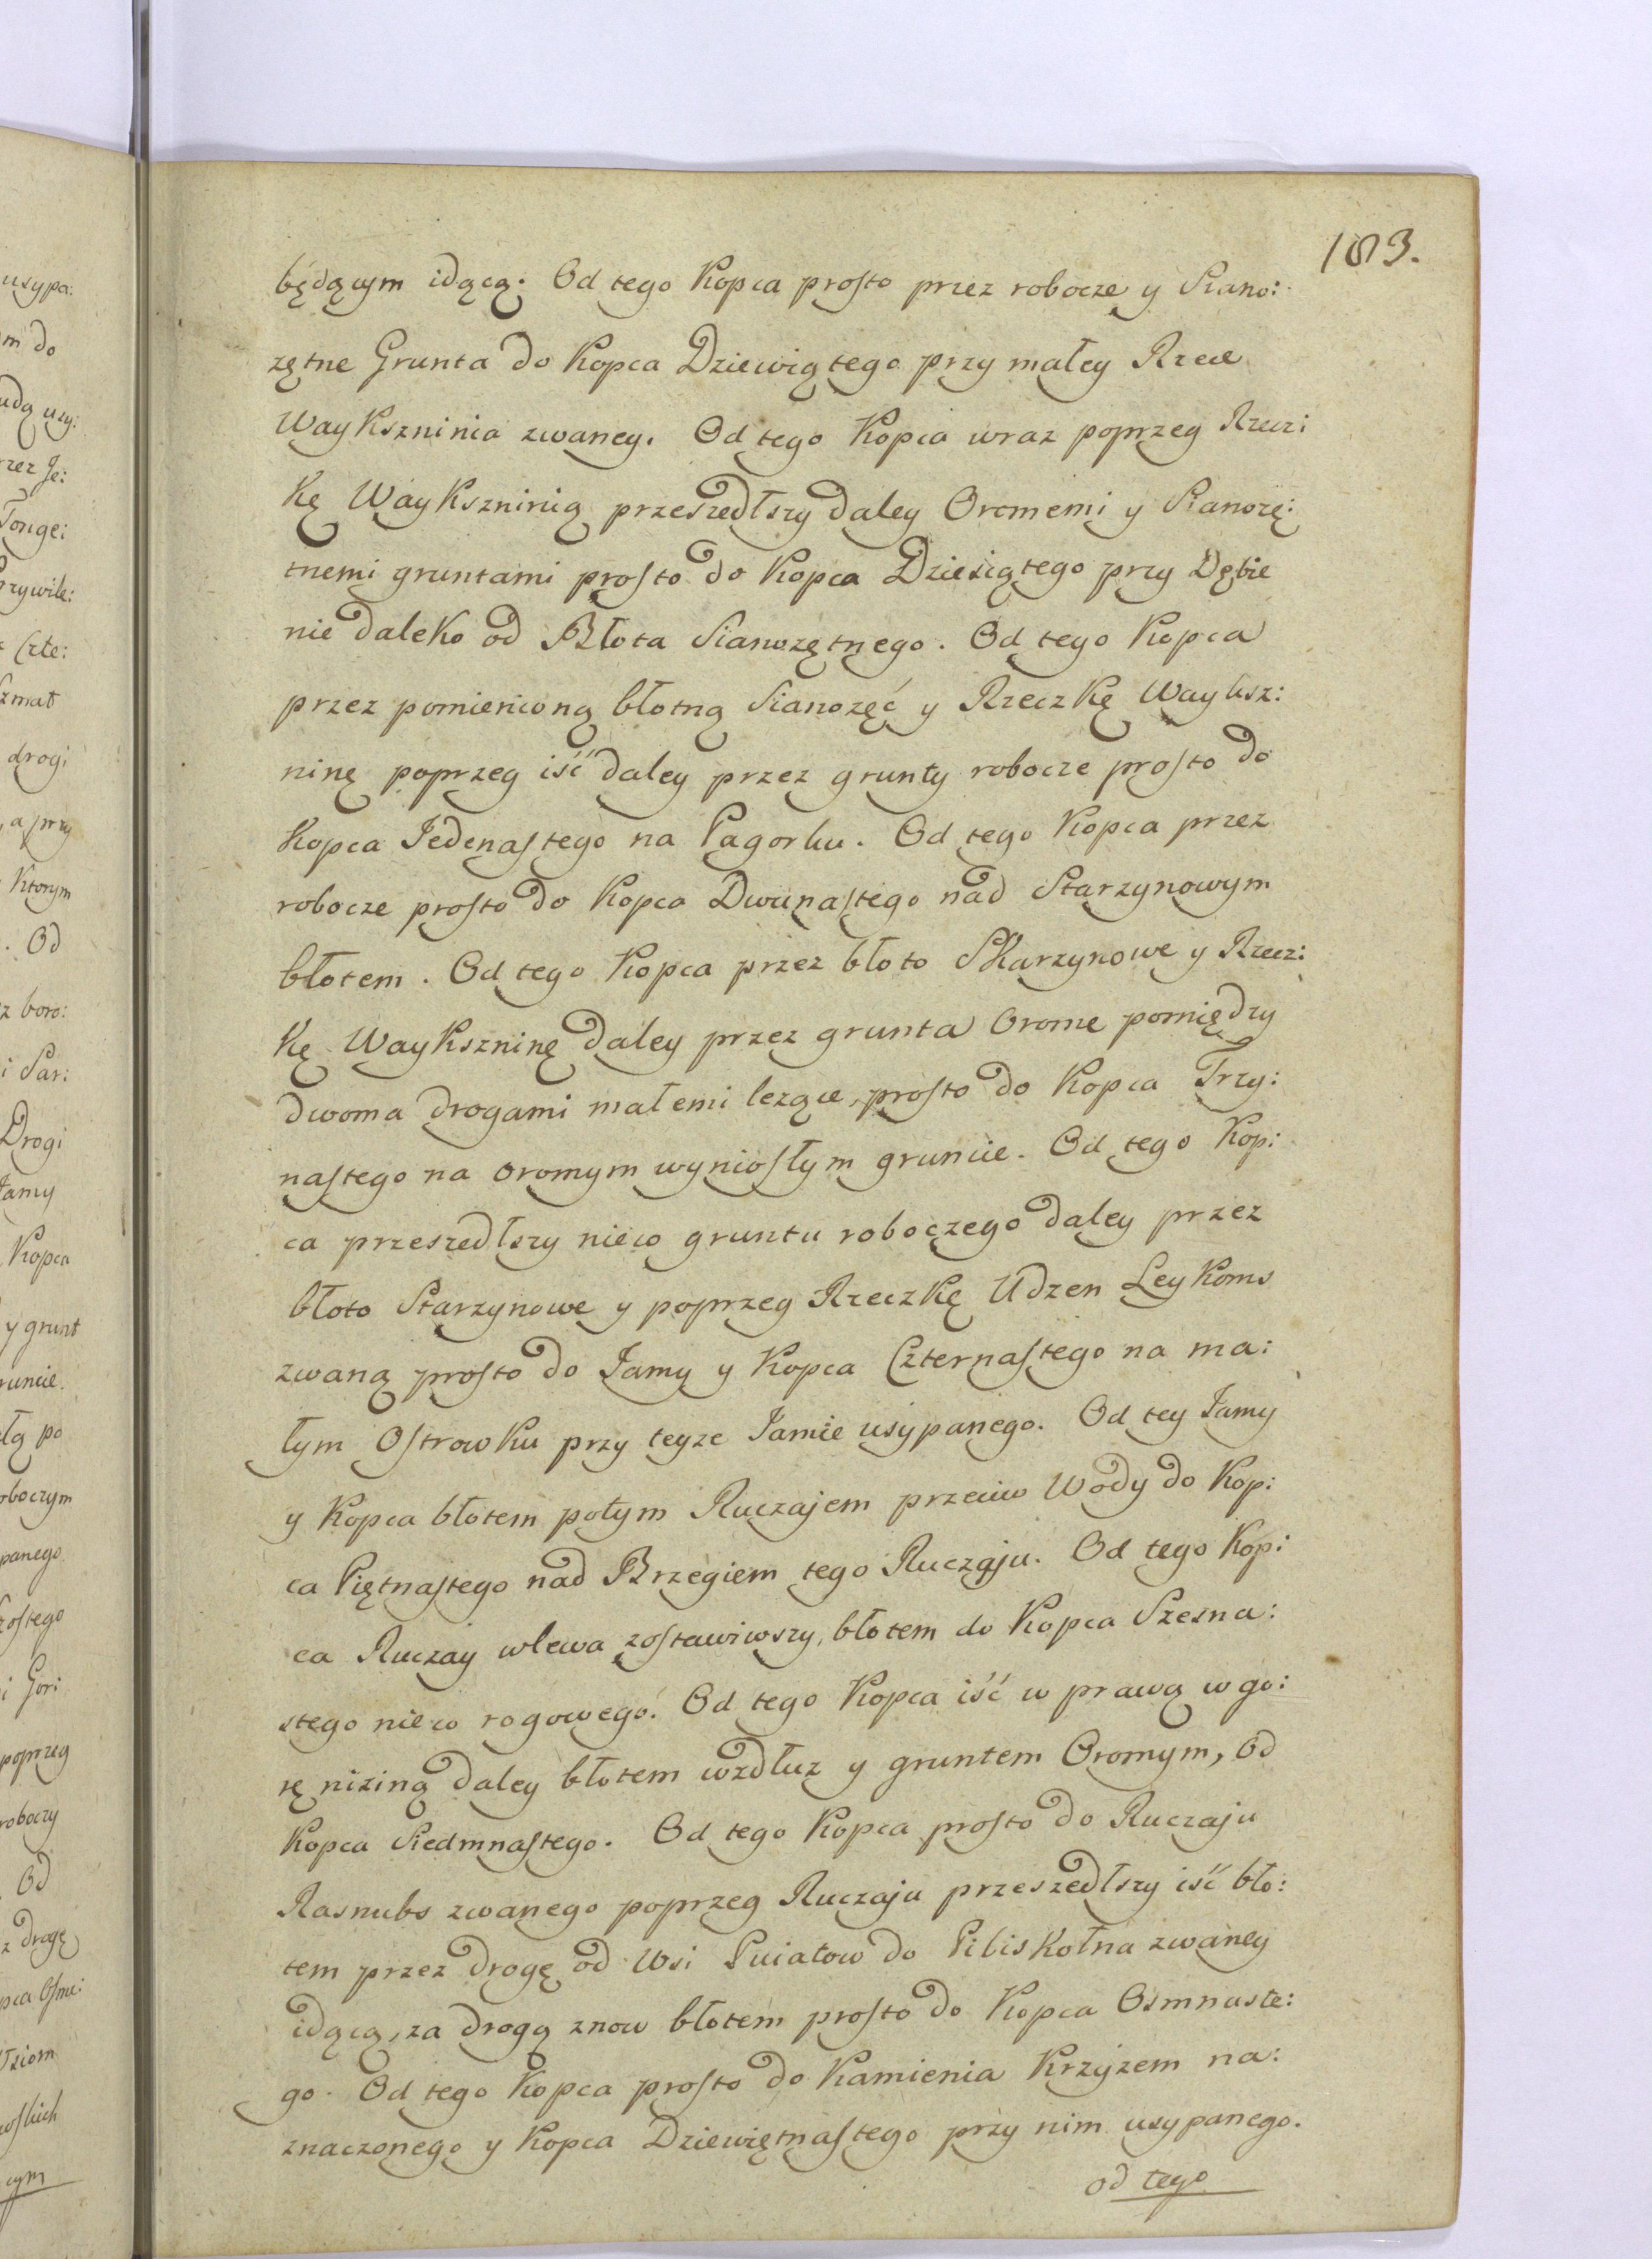 183.
będącym idącą. Od tego Kopca prosto przez robocze y Siano:
zętne Grunta do Kopca Dziewiątego przy małey Rzece
Waykszninia zwaney. Od tego Kopca wraz poprzeg Rzecz:
kę Waykszninią przeszedłszy daley Oromemi y Sianozę:
tnemi gruntami prosto do Kopca Dziesiątego przy Dębie
nie daleko od Błota Sianozętnego. Od tego Kopca
przez pomienioną błotną Sianozęć y Rzeczkę Wayksz:
ninę poprzeg iść daley przez grunty robocze prosto do
Kopca Jedenastego na Pagorku. Od tego Kopca przez
robocze prosto do Kopca Dwunastego nad Starzynowym
błotem. Od tego Kopca przez błoto Skarzynowe y Rzecz:
kę Waykszninę daley przez grunta Orome pomiędzy
dwoma drogami małemi lezące, prosto do Kopca Trzy:
nastego na oromym wyniosłym gruncie. Od tego Kop:
ca przeszedłszy nieco gruntu roboczego daley przez
błoto Starzynowe y poprzeg Rzeczkę Udzen Leykoms
zwaną prosto do Jamy y Kopca Czternastego na ma:
łym Ostrowku przy teyze Jamie usypanego. Od tey Jamy
y Kopca błotem połym Ruczajem przeciw Wody do Kop:
ca Piętnastego nad Brzegiem tego Ruczaju. Od tego Kop:
ca Ruczay wlewa zostawiwszy, błotem do Kopca Szesna:
stego nieco rogowego. Od tego Kopca iść w prawą w go:
rę niziną daley błotem wzdłuz y gruntem Oromym, Od
Kopca Siedmnastego. Od tego Kopca prosto do Ruczaju
Rasnubs zwanego poprzeg Ruczaju przeszedłszy iść bło:
tem przez drogę od Wsi Puiatow do Piliskołna zwaney
idącą, za drogą znow błotem prosto do Kopca Osmnaste:
go. Od tego Kopca prosto do Kamienia Krzyzem na:
znaczonego y Kopca Dziewiętnastego przy nim usypanego.
od tego